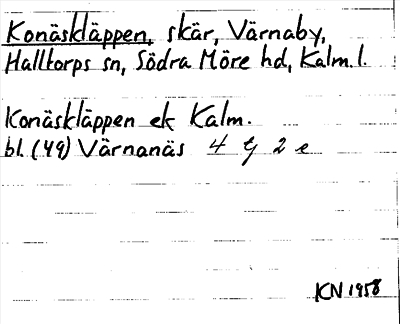 Konäskläppen, skär, Värnaby,
Halltorps sn, Södra Möre hd, Kalm. l.
Konäskläppen ek Kalm.
bl. (49) Värnanäs 4 G 2 e
KN 1958